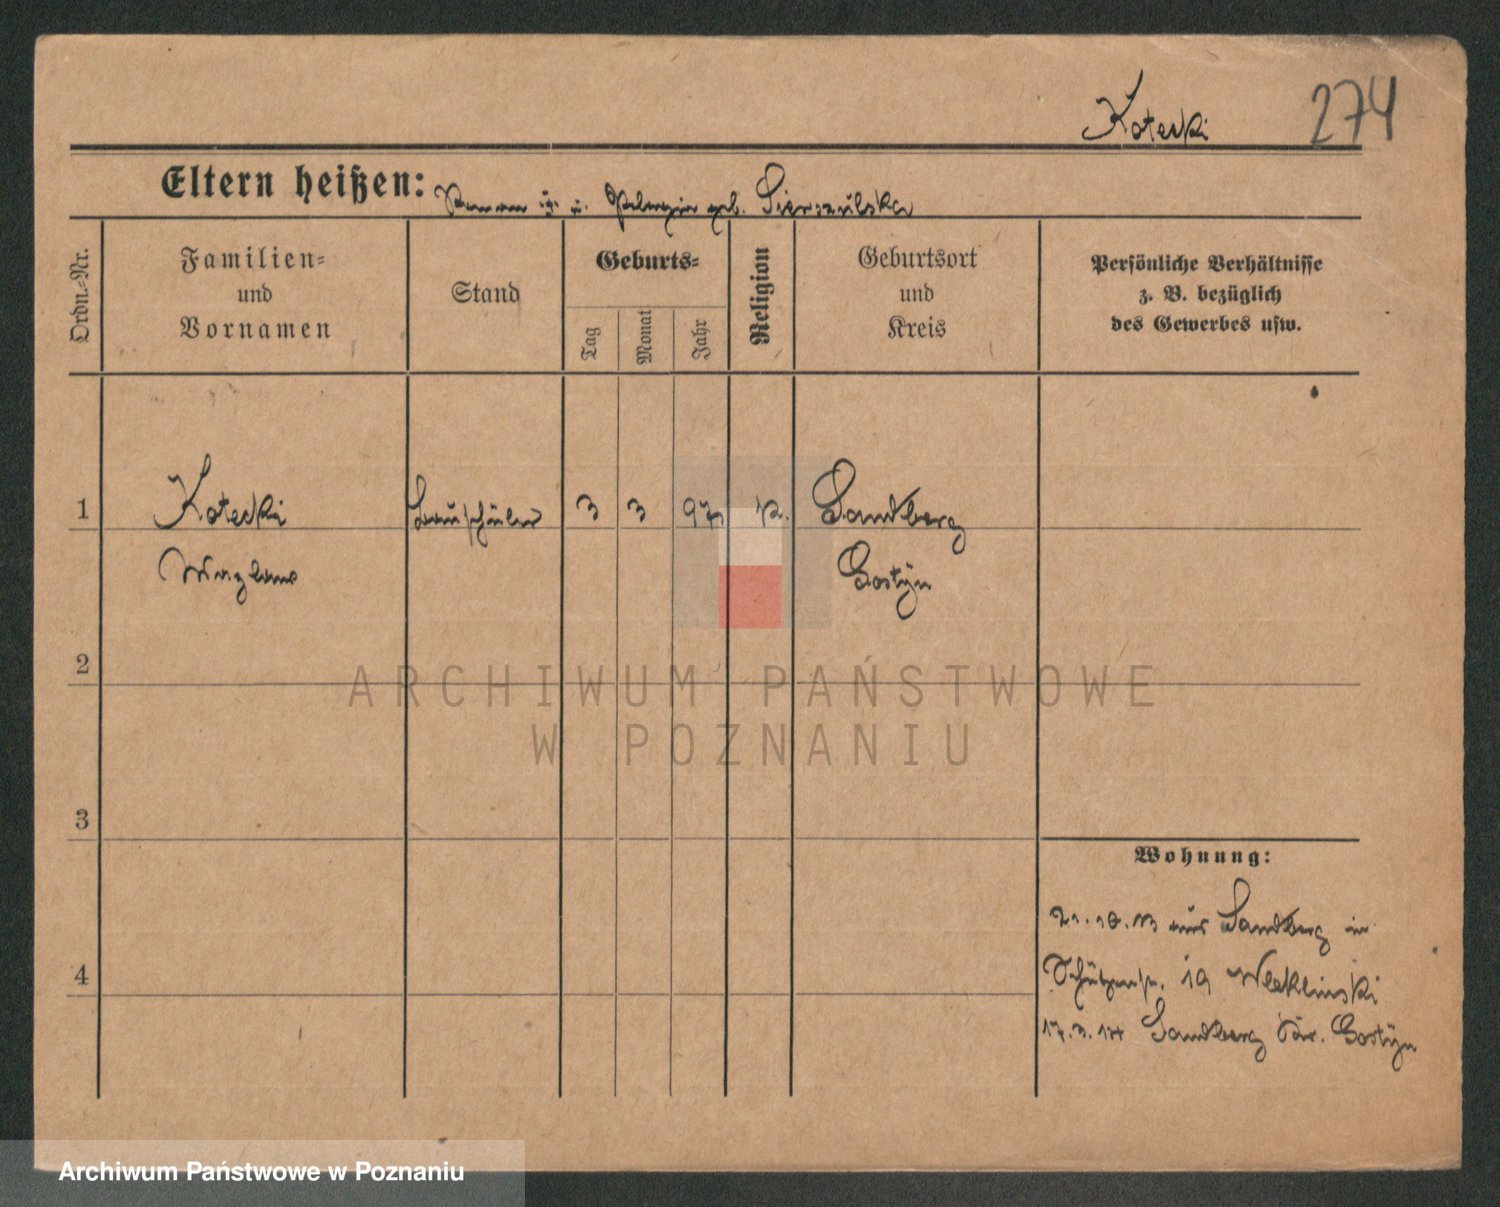 Kotecki 274
Eltern heißen: u. Pelagia geb.
Ordn.-Nr.
Familien-
und
Vornamen
Stand
Geburts-
Tag
Monat
Jahr
Religion
Geburtsort
und
Kreis
Persönliche Verhältnisse
z. B. bezüglich
des Gewerbes usw.
1 Kotecki 3 3 97 k. Sandberg
Wazlaus Gostÿn
2
ARCHIWUM PAŃSTWOWE
W POZNANIU
3
Wohnung:
21.10.13 aus Sandberg in
4
Schützenstr. 19 Wleklinski
17.3.14 Sandberg Kr. Gostÿn
Archiwum Państwowe w Poznaniu